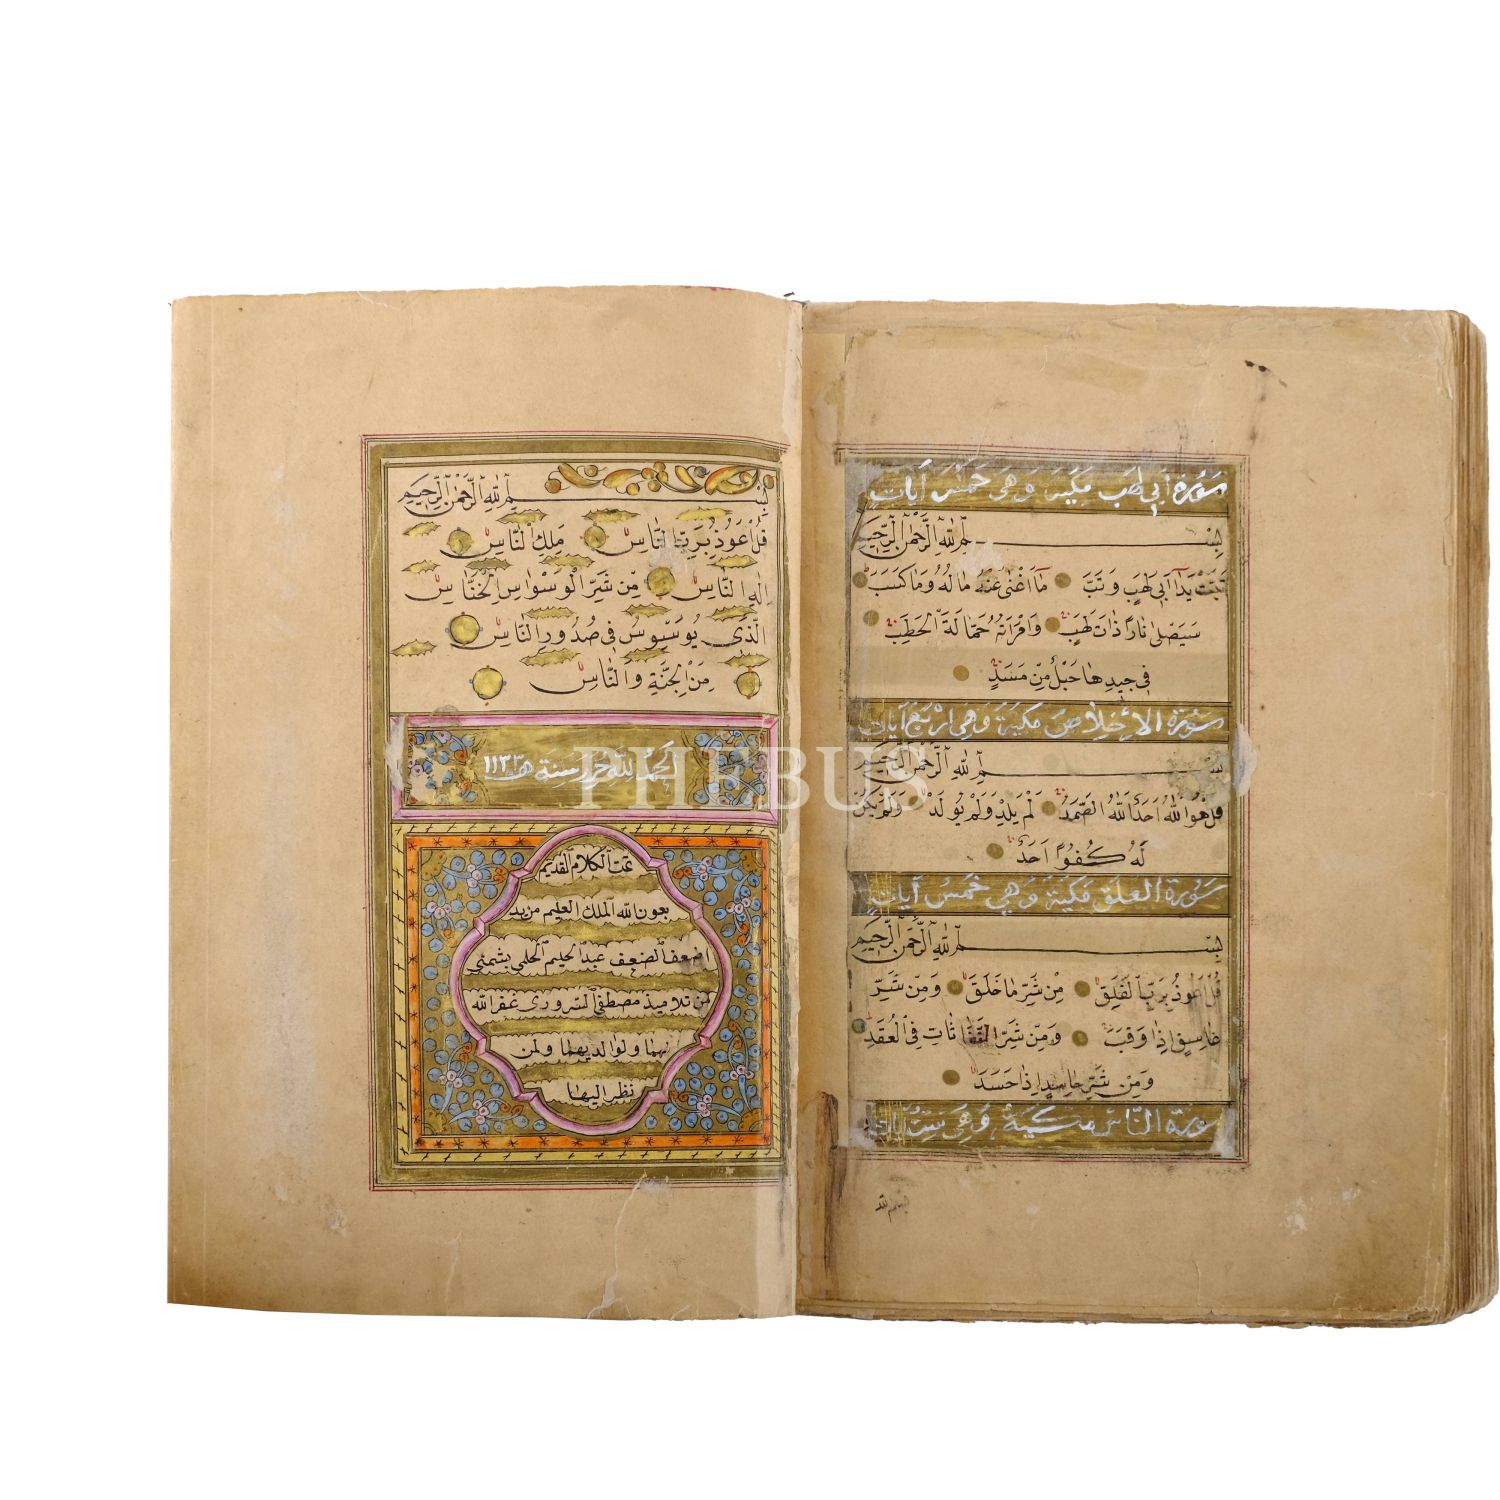 سورة ابى لهب مكية وهى خمس آيات
بسم الله الرحمن الرحيم
تبت يدا ابى لهب وتب ما اغنى عنه ماله وما كسب
سيصلى نارا ذات لهب وامراته حمالة الحطب
فى جيدها حبل من مسد
سورة الاخلاص مكية وهى اربع آيات
بسم الله الرحمن الرحيم
قل هو الله احد الله الصمد لم يلد ولم يولد ولم يكن
له كفوا احد
سورة العلق مكية وهي خمس آيات
بسم الله الرحمن الرحيم
قل اعوذ برب الفلق من شر ما خلق ومن شر
غاسق اذا وقب ومن شر النفاثات في العقد
ومن شر حاسد اذا حسد
سورة الناس مكية وهى ست آيات
بسم الله الرحمن الرحيم
قل اعوذ برب الناس ملك الناس
اله الناس من شر الوسواس الخناس
الذى يوسوس فى صدور الناس
من الجنة والناس
الحمد لله حرر سنة ١١٢٣
تمت الكلام القديم
بعون الله الملك العليم من يد
اضعف الضعف عبد الحليم الحلمي
من تلاميذ مصطفى السرورى غفر الله
لهما ولوالديهما ولمن
نظر اليها
PHEBUS